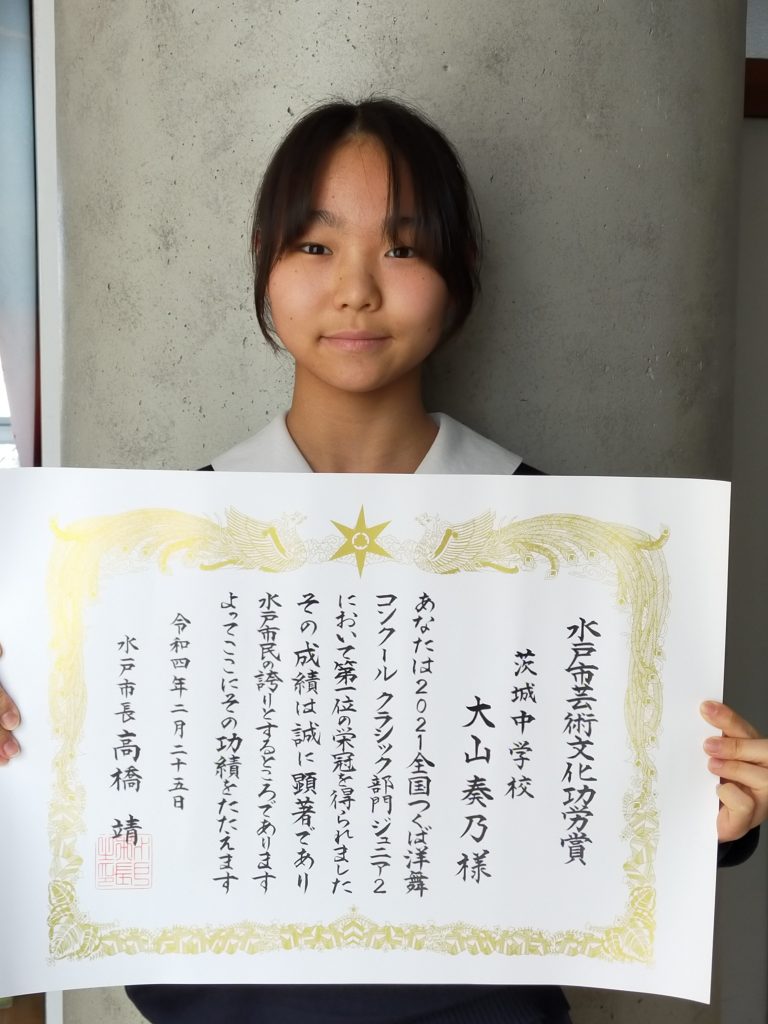 水戸市芸術文化功労賞
茨城中学校
大山奏乃様
あなたは２０２１全国つくば洋舞
コンクール クラシック部門ジュニア２
において第一位の栄冠を得られました
その成績は誠に顕著であり
水戸市民の誇りとするところであります
よってここにその功績をたたえます
令和四年二月二十五日
水戸市長 高橋 靖